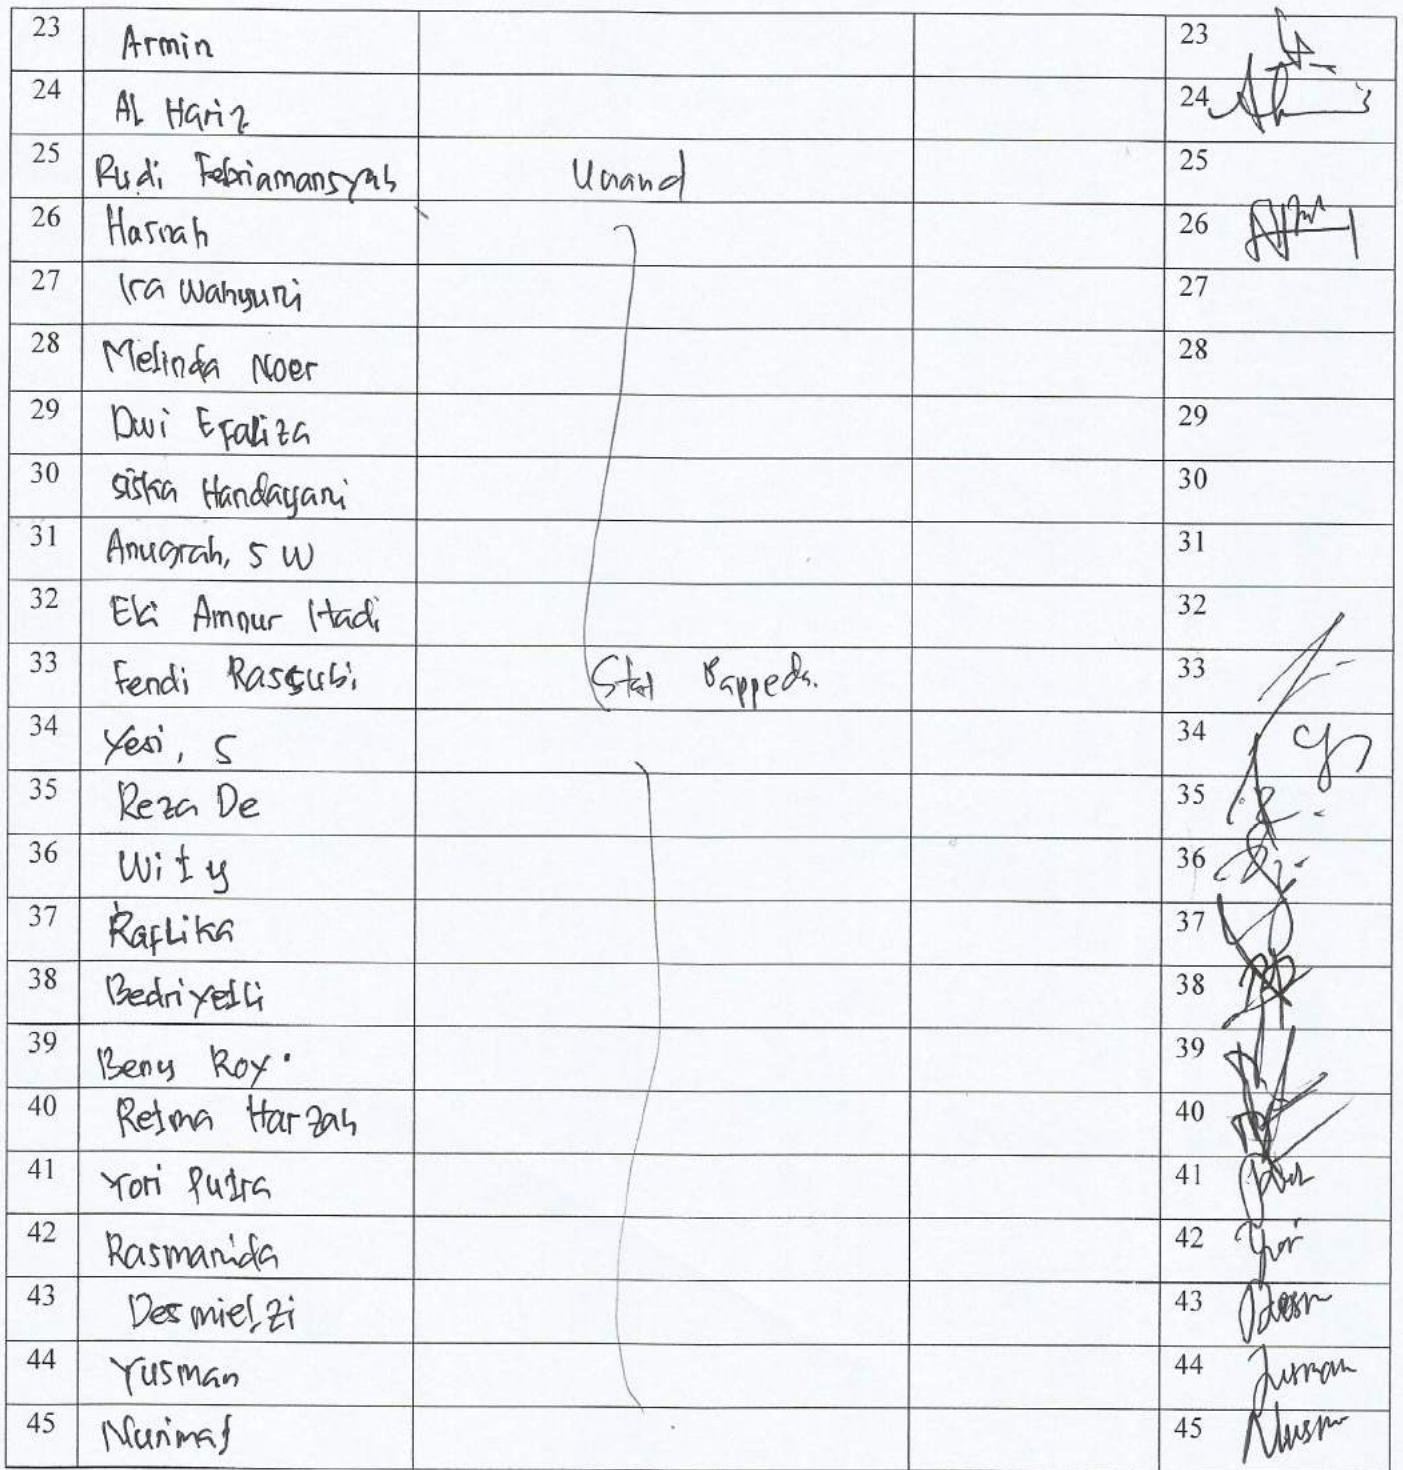 23 Armin 23
24 Al Hariz 24
25 Rudi Febriamansyah Unand 25
26 Hasnah 26
27 Ira Wahyuni 27
28 Melinda Noer 28
29 Dwi Efaliza 29
30 Siska Handayani 30
31 Anugrah, S W 31
32 Eki Amnur Hadi 32
33 Fendi Staf Bappeda. 33
34 Yesi, S 34
35 Reza De 35
36 Wity 36
37 Raflika 37
38 Bedriyelli 38
39 Beny Roy 39
40 Retma Harzah 40
41 Yori Putra 41
42 Rasmanida 42
43 Desmielzi 43
44 Yusman 44
45 45